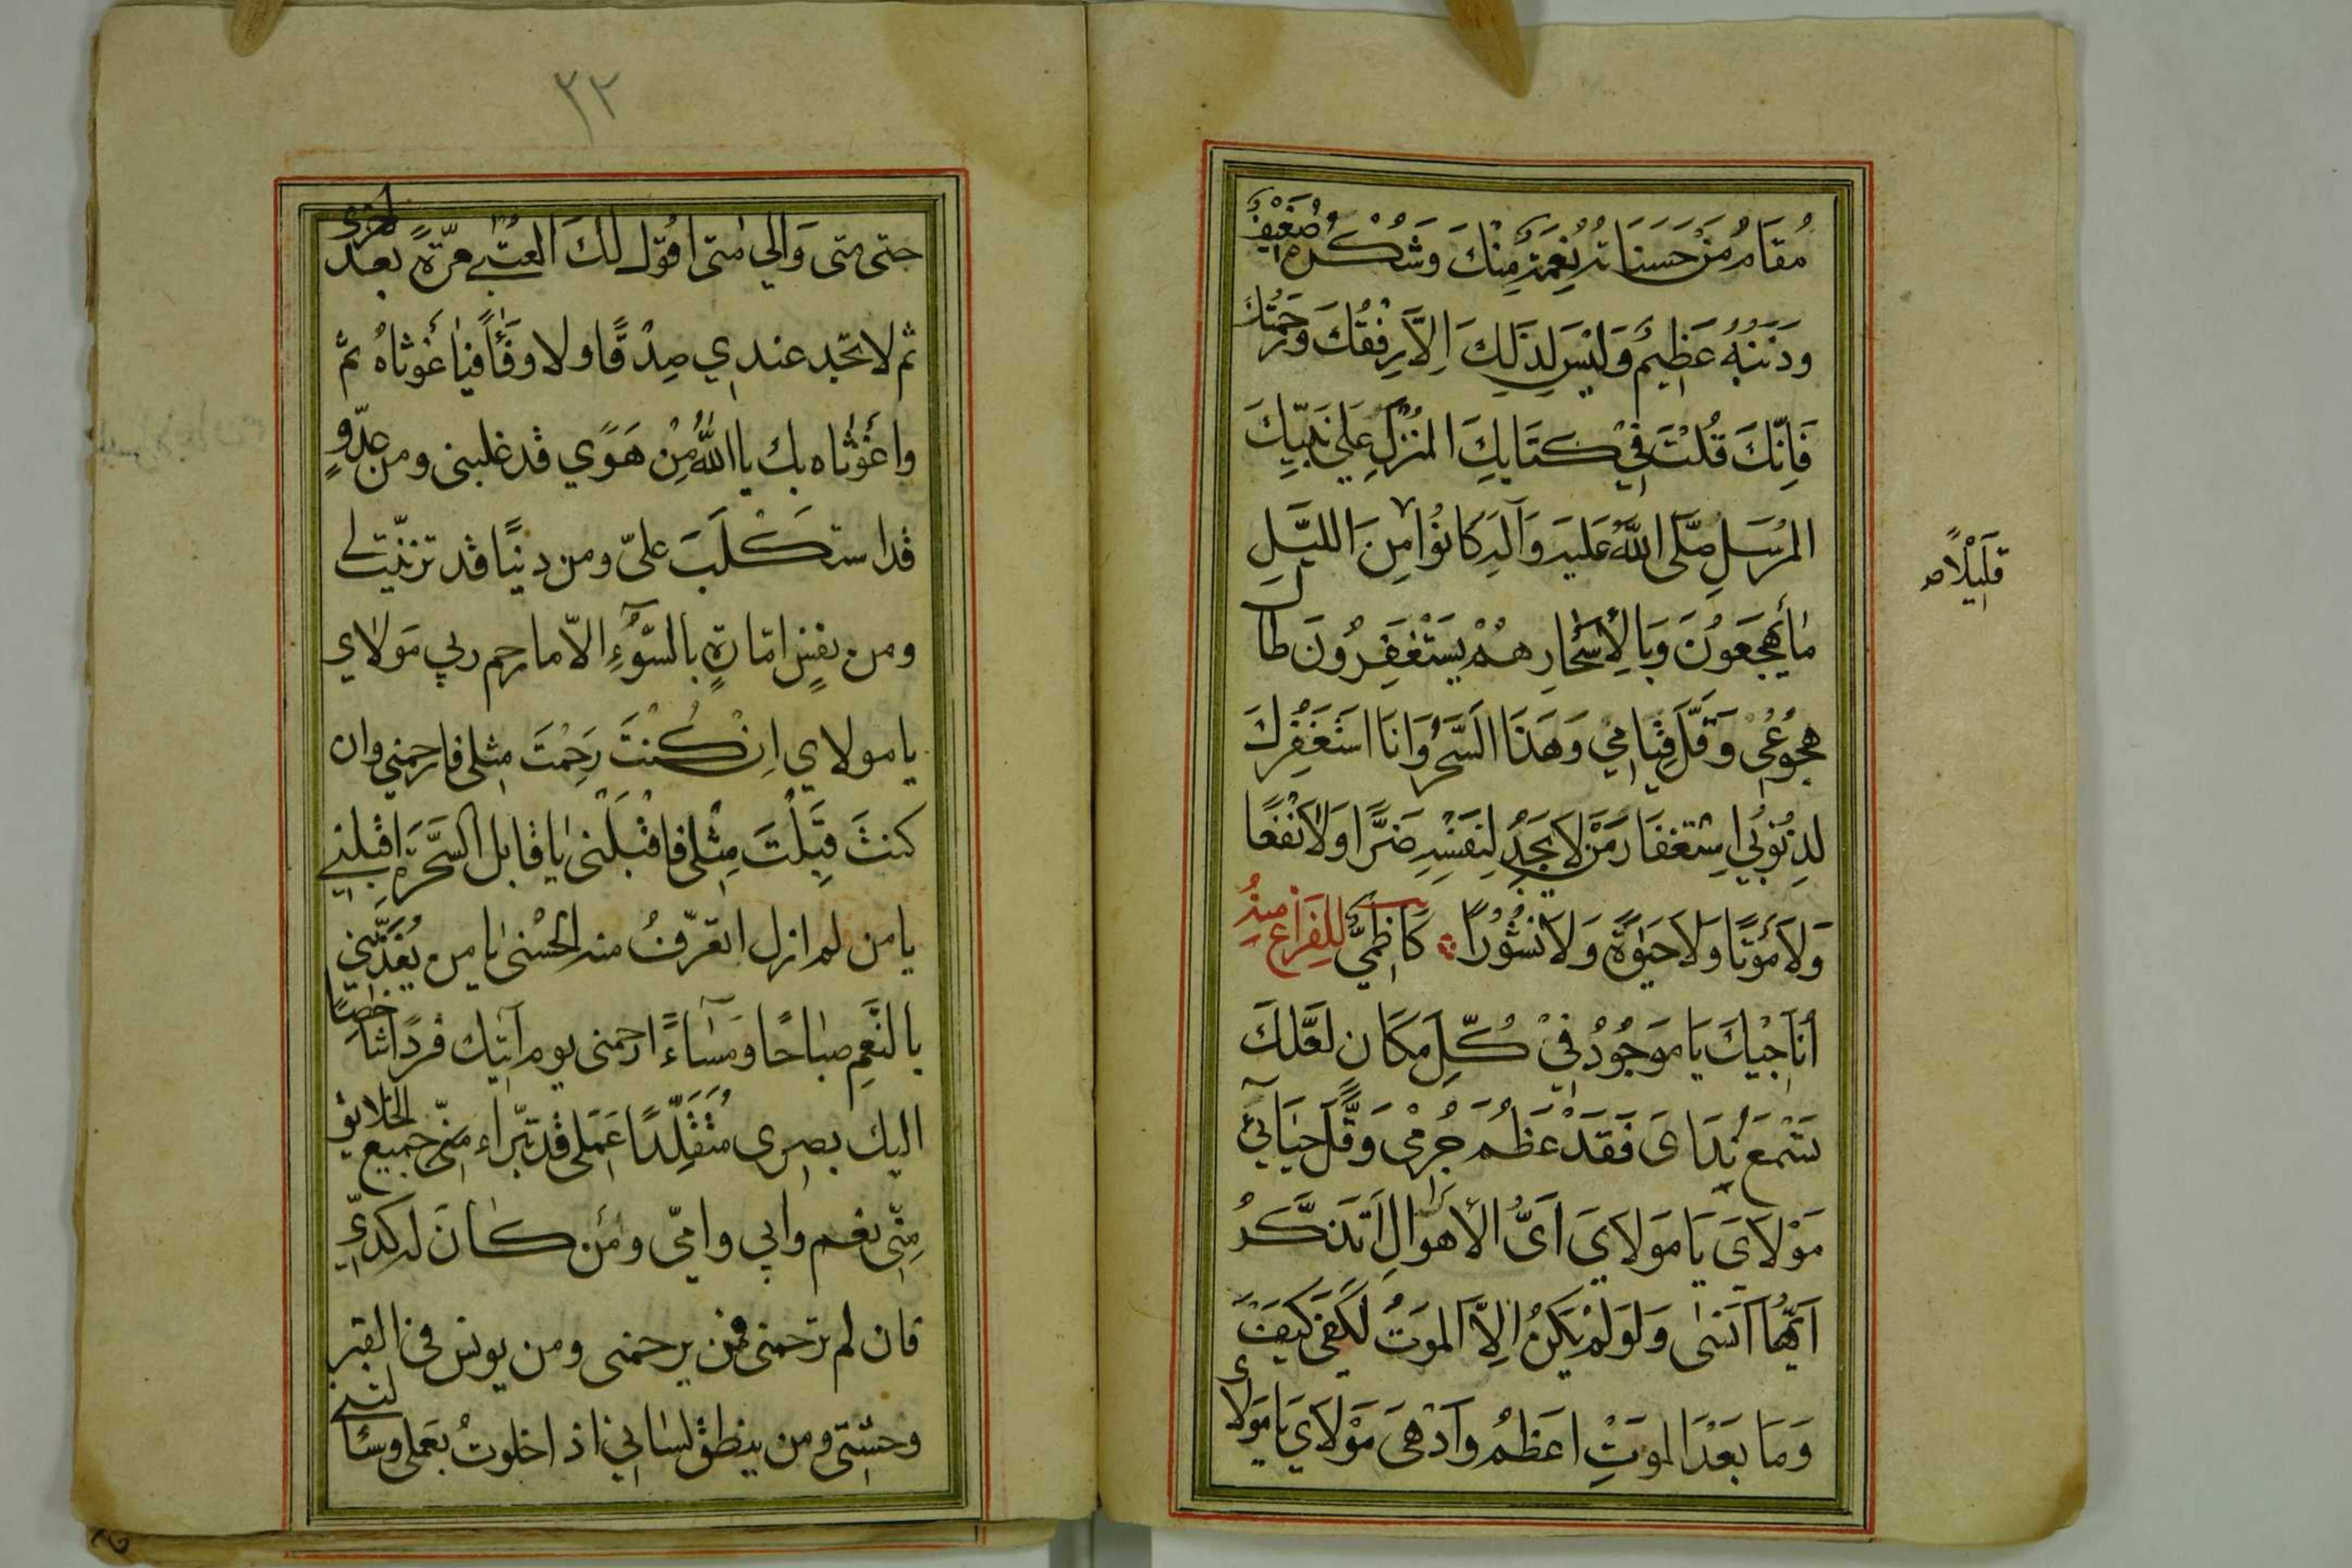 مُقَامُ مَنْ حَسَنَاتُهُ نِعْمَةٌ مِنْكَ وَشُكْرُهُ ضَعِيفٌ
وَذَنْبُهُ عَظِيمٌ وَلَيْسَ لِذَلِكَ اِلَّا رِفْقُكَ وَرَحْمَتُكَ
فَاِنَّكَ قُلْتَ فِي كِتَابِكَ المُنْزَلِ عَلَى نَبِيِّكَ
المُرْسَلِ صَلَّى اللَّهُ عَلَيْهِ وَآلِهِ كَانُوا مِنَ اللَّيْلِ
قَلِيْلًا
مَا يَهْجَعُونَ وَبِالْأَسْحَارِ هُمْ يَسْتَغْفِرُونَ طَالَ
هُجُوْعِي وَقَلَّ قِيَامِي وَهَذَا السَّحَرُ وَاَنَا اَسْتَغْفِرُكَ
لِذُنُوْبِي اِسْتِغْفَارَ مَنْ لَا يَجِدُ لِنَفْسِهِ ضَرًّا وَلَا نَفْعًا
وَلَا مَوْتًا وَلَا حَيٰوةً وَلَا نُشُوْرًا كَاظِمِيٌّ لِلْفَرَاغِ مِنْهُ
أُنَاجِيْكَ يَا مَوْجُوْدُ فِيْ كُلِّ مَكَان لَعَلَّكَ
تَسْمَعُ نِدَائ فَقَدْ عَظُمَ جُرْمِي وَقَلَّ حَيَائِي
مَوْلَايَ يَا مَوْلَايَ اَيَّ الأَهْوَالِ اَتَذَكَّرُ
اَيُّهَا اَنْسٰى وَلَوْ لَمْ يَكُنْ اِلَّا المَوْتُ لَكَفَى كَيْفَ
وَمَا بَعْدَ المَوْتِ اَعْظَمُ وَاَدْهَى مَوْلَايَ يَا مَوْلَاي
٣٢
حتى متى وَالى مٰتى اقُول لَكَ العُتْبى مرّةً بعد اخرى
ثم لا تجد عندي صِدْقًا ولا وَفَاءً فيٰا غَوْثاهُ ثم
واغَوْثاه بك يا اللّٰهُ مِنْ هَوًى قد غلبنى ومن عدُوٍّ
قد استكْلَبَ علىّ ومن دنيًا قد تزيّنت لى
ومن نفسٍ امّارةٍ بالسّوٓءِ الّا ما رحم ربي مَولاى
يا مولاي اِنْ كُنْتَ رَحِمْتَ مثلى فارحمني وان
كنتَ قَبِلْتَ مِثْلى فاقْبَلْنى يٰا قابل السَّحَرَة اقبلنى
يا من لم ازل اتعرّفُ منه الحُسْنىٰ يا من يُغَذِّيني
بالنِّعَمِ صباحًا ومَسٰاءً ارحمنى يوم آتيك فردًا شاخصًا
اليك بصرى مُتَقَلِّدًا عَمَلى قد تبرّاء منّى جميع الخلائق
مِنّى نعم وابي وامّي ومَن كٰانَ له كدّي
فان لم ترحمنى فمن يرحمنى ومن يونس فى القبر
وحشتى ومن ينطق لسٰاني اذا خلوتُ بعملى وسٰائلتنى